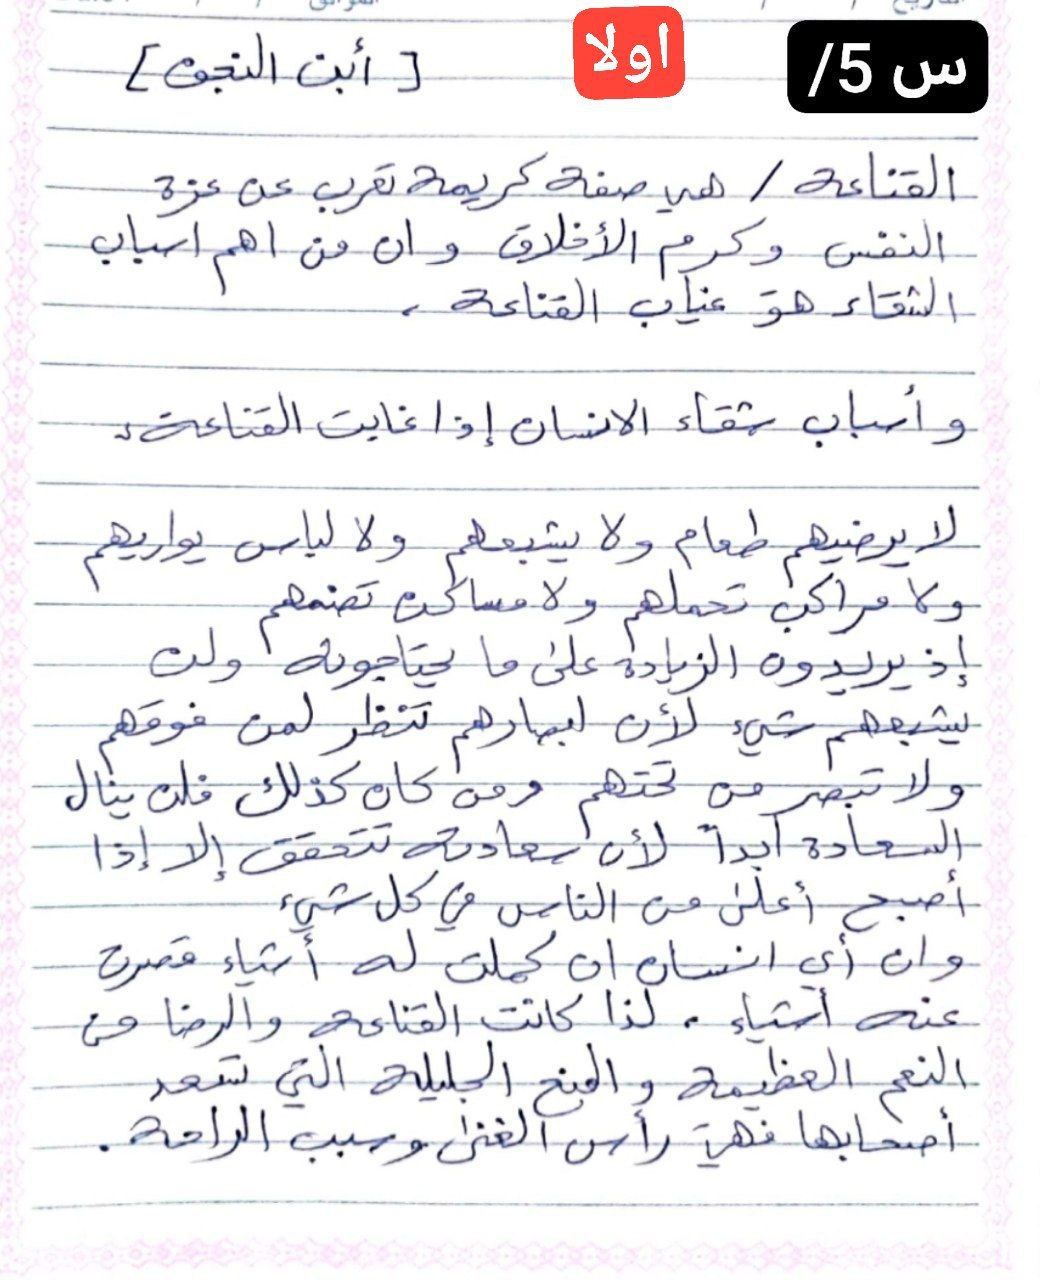 التاريخ / / الموافق
س 5/ اولا [أبن النجف]
القناعة / هي صفة كريمة تعرب عن عزة
النفس وكرم الأخلاق وان من اهم اسباب
الشقاء هو غياب القناعة .
و أسباب شقاء الانسان إذا غابت القناعة .
لا يرضيهم طعام ولا يشبعهم ولا لباس يواريهم
ولا مراكب تحملهم ولا مساكن تضمهم
إذ يريدون الزيادة على ما يحتاجونه ولن
يشبعهم شيء لأن ابصارهم تنظر لمن فوقهم
ولا تبصر من تحتهم ومن كان كذلك فلن ينال
السعادة أبداً لأن سعادته تتحقق إلا إذا
أصبح أعلى من الناس في كل شيء
وان أي انسان ان كملت له أشياء قصرت
عنه أشياء . لذا كانت القناعة والرضا من
النعم العظيمة و المنح الجليلة التي تسعد
أصحابها فهي رأس الغنى وسبب الراحة .